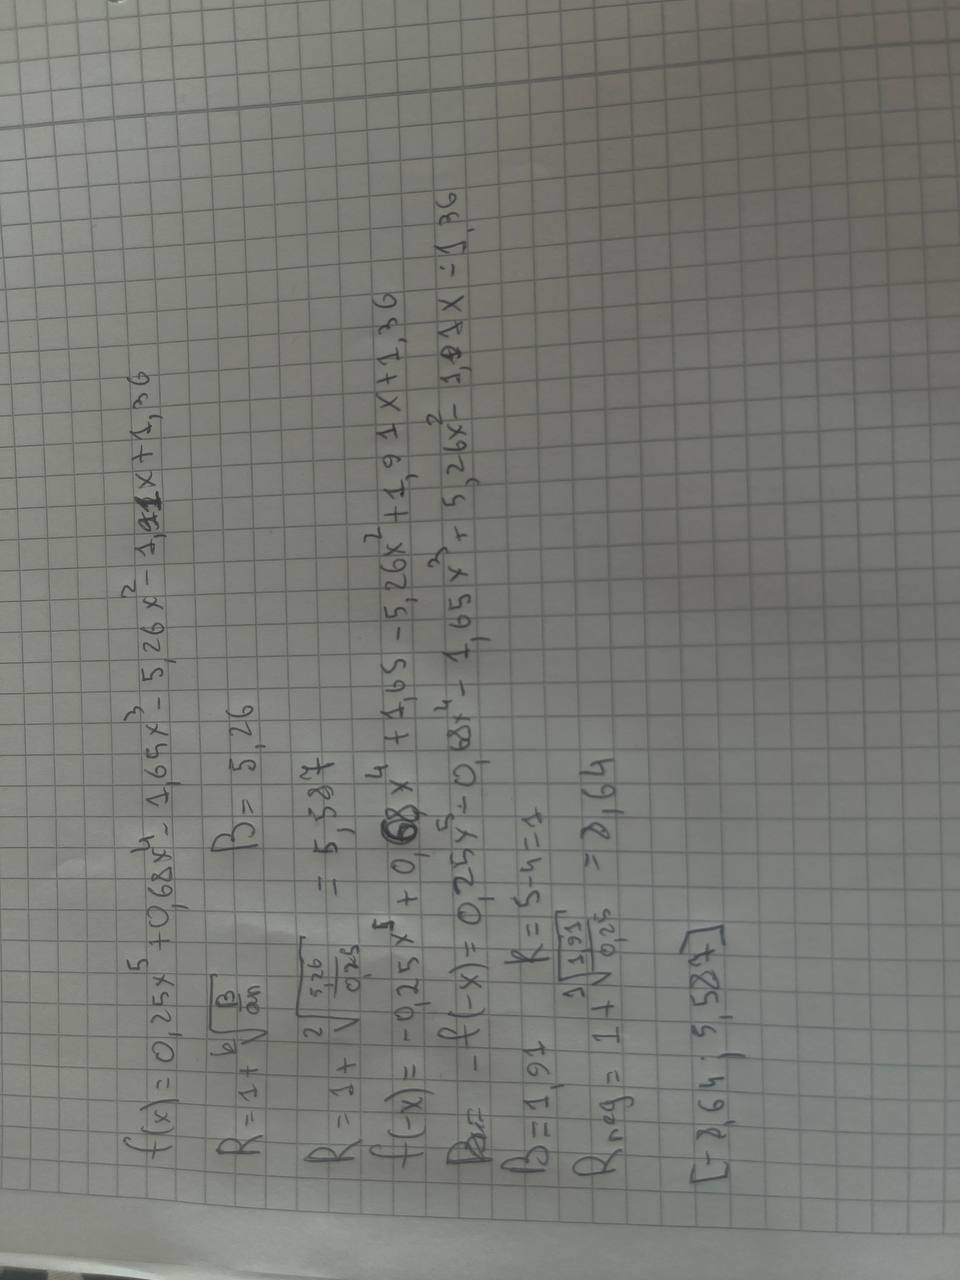 f(x) = 0,25x⁵ + 0,68x⁴ - 1,65x³ - 5,26x² - 1,91x + 1,36
R = 1 + ᵇ√(B/an) B = 5,26
R = 1 + ²√(5,26/0,25) = 5,587
f(-x) = -0,25x⁵ + 0,68x⁴ + 1,65 - 5,26x² + 1,91x + 1,36
-f(-x) = 0,25x⁵ - 0,68x⁴ - 1,65x³ + 5,26x² - 1,91x - 1,36
B = 1,91 R = 5-4 = 1
R neg = 1 + ¹√(1,91/0,25) = 8,64
[-8,64 ; 5,587]